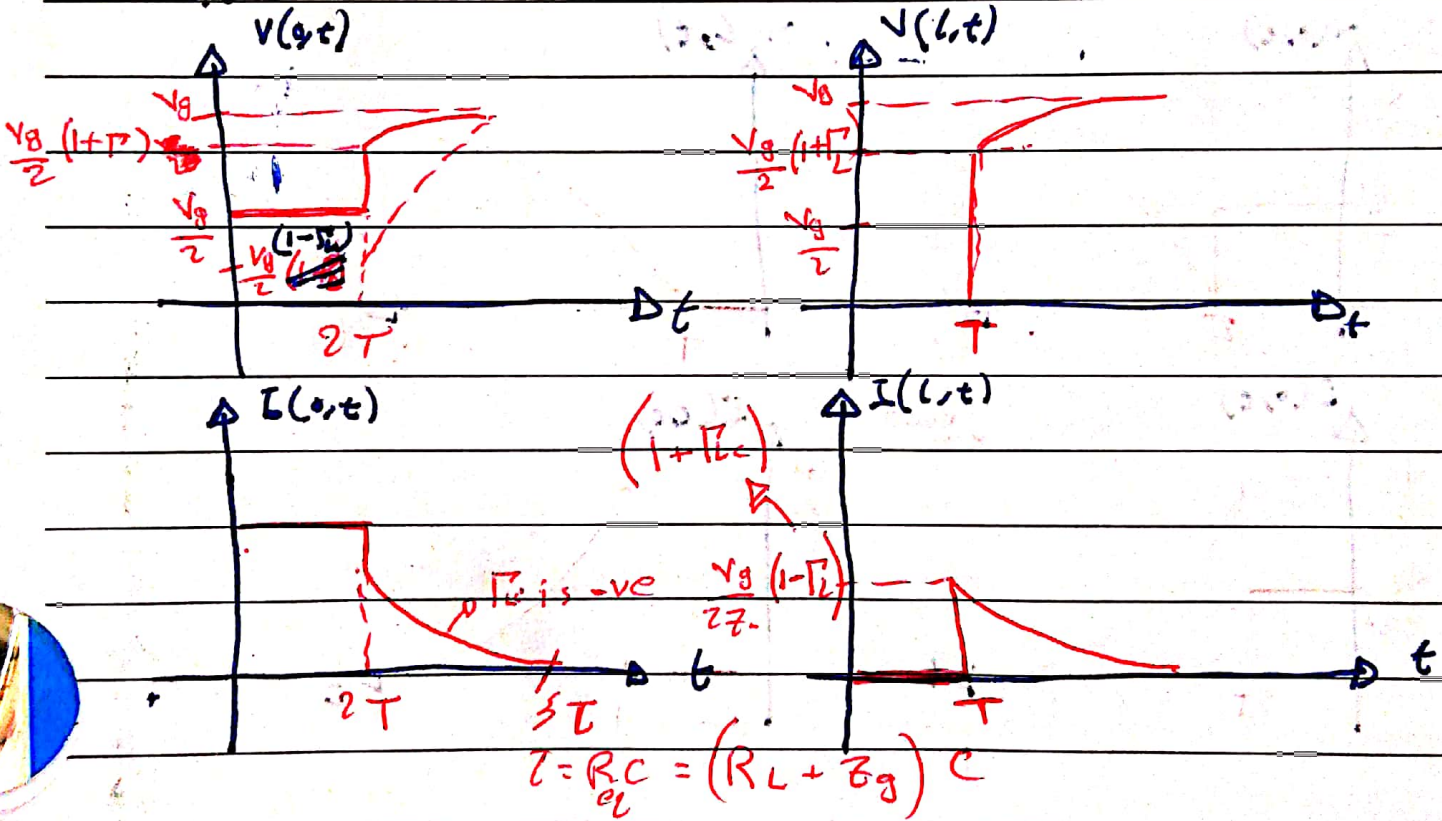 V(0,t)
Vg
Vg/2 (1+Γ)
Vg/2
(1-ΓL)
-Vg/2
2T
t
V(l,t)
Vg
Vg/2 (1+ΓL)
Vg/2
T
t
I(0,t)
ΓL is -ve
2T
5τ
t
I(l,t)
(1+ΓLc)
Vg/2Z. (1-ΓL)
T
t
τ = Req C = (RL + Zg) C